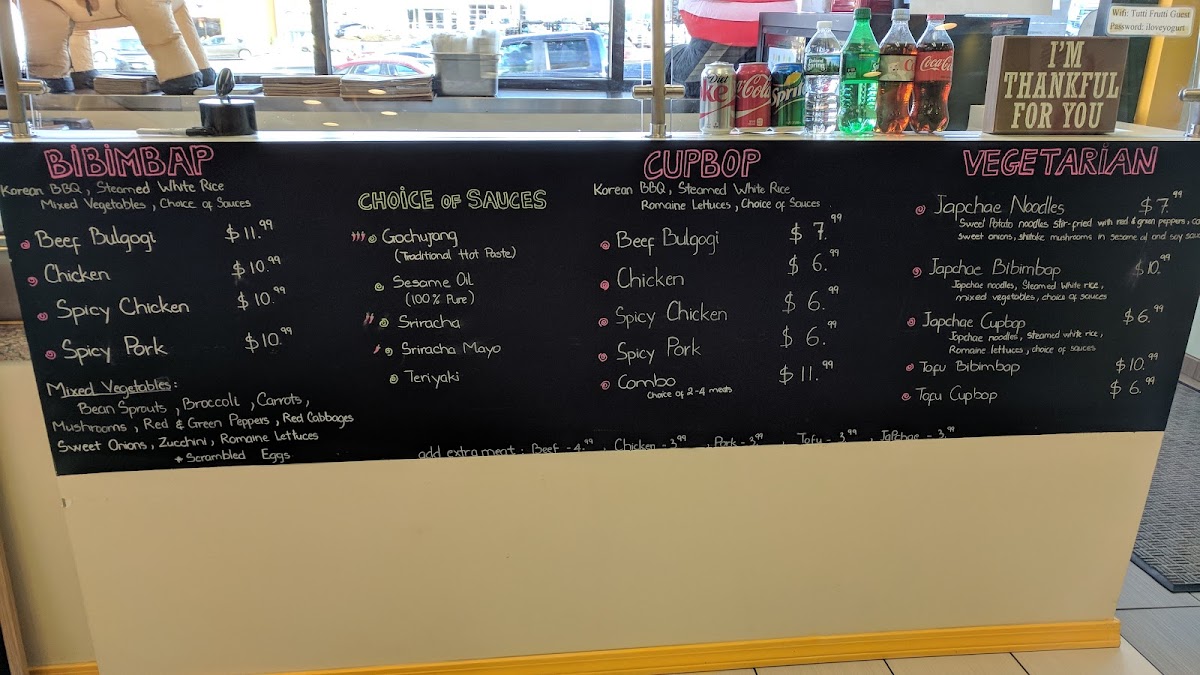 Wifi: Tutti Frutti Guest
Password: iloveyogurt
I'M
THANKFUL
FOR YOU
Diet
ke
Coca-Cola
Sprite
Coca-Cola
BIBIMBAP
Korean BBQ, Steamed White Rice
Mixed Vegetables, Choice of Sauces
Beef Bulgogi $11.99
Chicken $10.99
Spicy Chicken $10.99
Spicy Pork $10.99
Mixed Vegetables:
Bean Sprouts, Broccoli, Carrots,
Mushrooms, Red & Green Peppers, Red Cabbages
Sweet Onions, Zucchini, Romaine Lettuces
+ Scrambled Eggs
CHOICE OF SAUCES
Gochujang
(Traditional Hot Paste)
Sesame Oil
(100% Pure)
Sriracha
Sriracha Mayo
Teriyaki
CUPBOP
Korean BBQ, Steamed White Rice
Romaine Lettuces, Choice of Sauces
Beef Bulgogi $7.99
Chicken $6.99
Spicy Chicken $6.99
Spicy Pork $6.99
Combo $11.99
Choice of 2-4 meats
VEGETARIAN
Japchae Noodles $7.99
Sweet Potato noodles stir-fried with red & green peppers,
sweet onions, shiitake mushrooms in sesame oil and soy
Japchae Bibimbap $10.99
Japchae noodles, Steamed white rice,
mixed vegetables, choice of sauces
Japchae Cupbop $6.99
Japchae noodles, steamed white rice,
Romaine lettuces, choice of sauces
Tofu Bibimbap $10.99
Tofu Cupbop $6.99
add extra meat: Beef - 4.99, Chicken - 3.99, Pork - 3.99, Tofu - 3.99, Japchae - 3.99